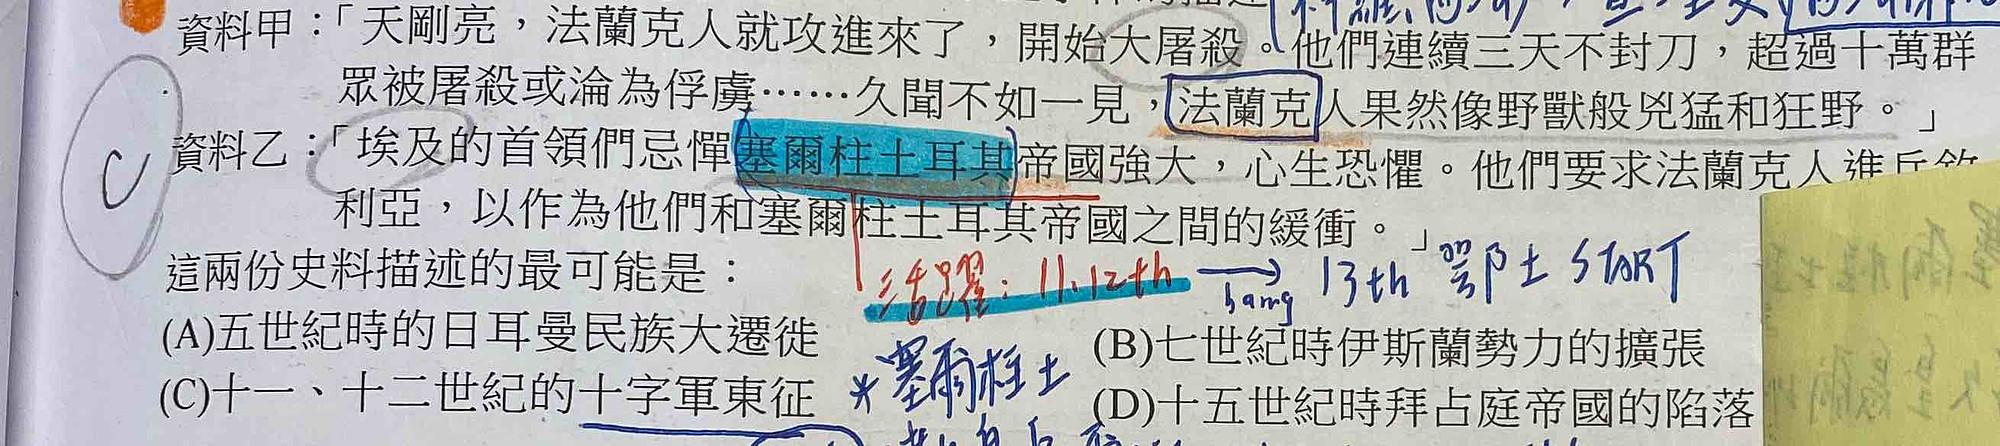 資料甲：「天剛亮，法蘭克人就攻進來了，開始大屠殺。他們連續三天不封刀，超過十萬群
眾被屠殺或淪為俘虜……久聞不如一見，法蘭克人果然像野獸般兇猛和狂野。」
C
資料乙：「埃及的首領們忌憚塞爾柱土耳其帝國強大，心生恐懼。他們要求法蘭克人進兵敘
利亞，以作為他們和塞爾柱土耳其帝國之間的緩衝。」
這兩份史料描述的最可能是：
活躍：11.12th → 13th 鄂土 START
(A)五世紀時的日耳曼民族大遷徙
(B)七世紀時伊斯蘭勢力的擴張
*塞爾柱土
(C)十一、十二世紀的十字軍東征
(D)十五世紀時拜占庭帝國的陷落